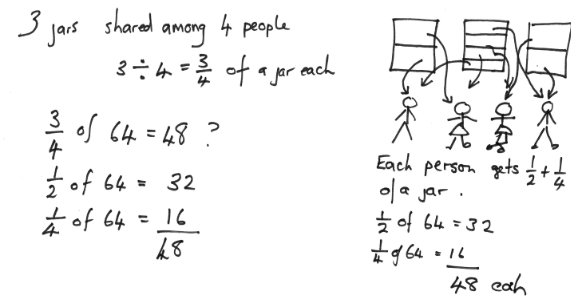 3 jars shared among 4 people
3 ÷ 4 = 3/4 of a jar each
3/4 of 64 = 48 ?
1/2 of 64 = 32
1/4 of 64 = 16
48
Each person gets 1/2 + 1/4
of a jar.
1/2 of 64 = 32
1/4 of 64 = 16
48 each